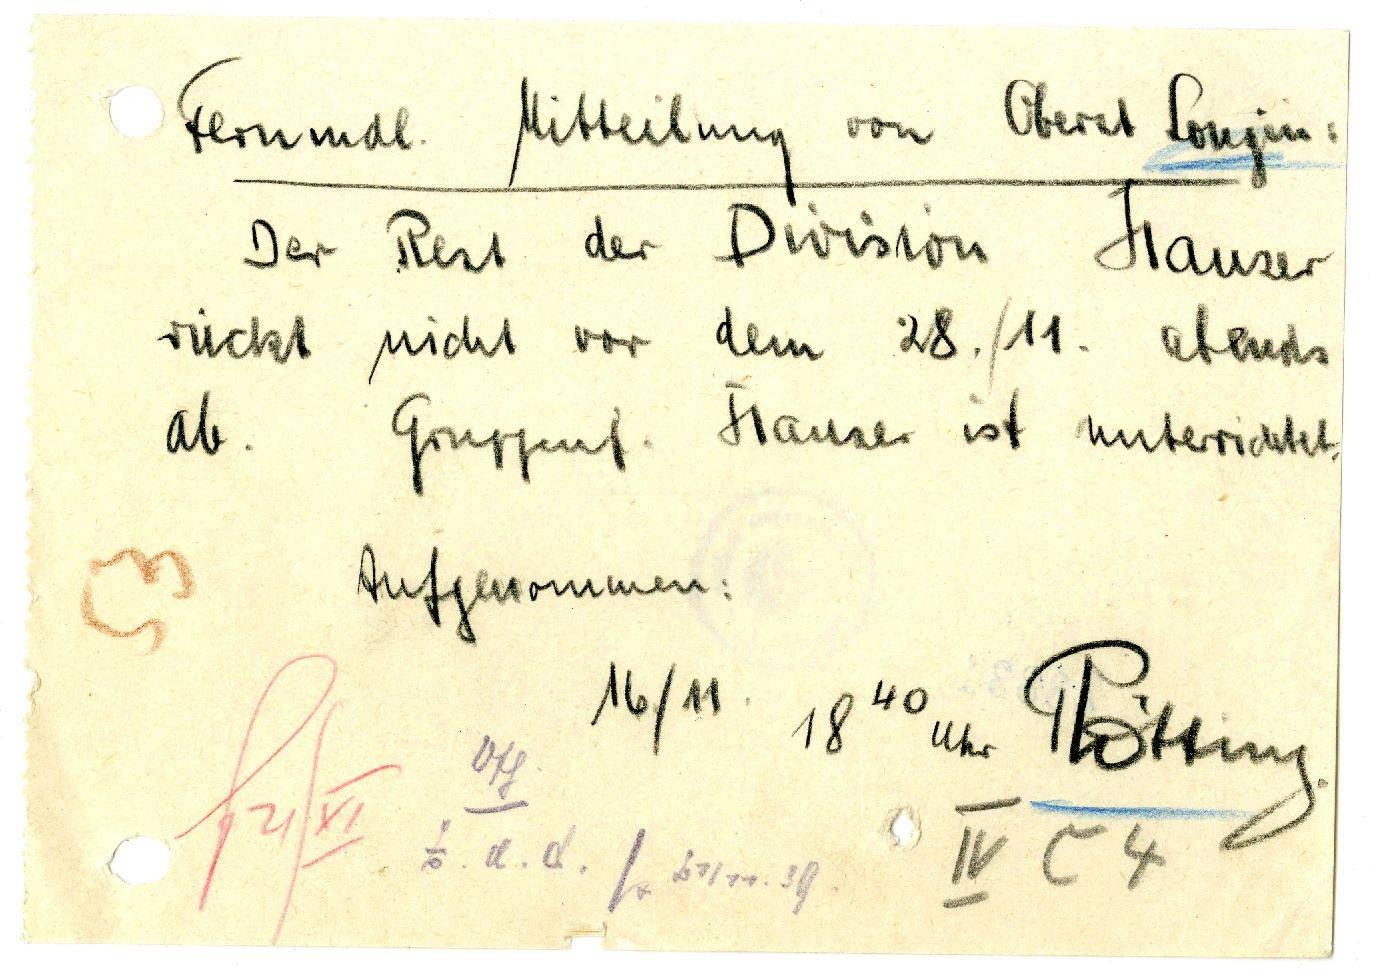 Fernmdl. Mitteilung von Oberst Longin:
Der Rest der Division Hauser
rückt nicht vor dem 28./11. abends
ab. Gruppenf. Hauser ist unterrichtet.
Aufgenommen:
16/11. 18 40 Uhr Pötting.
21/XI
Vfg
z. d. A.
IV C 4